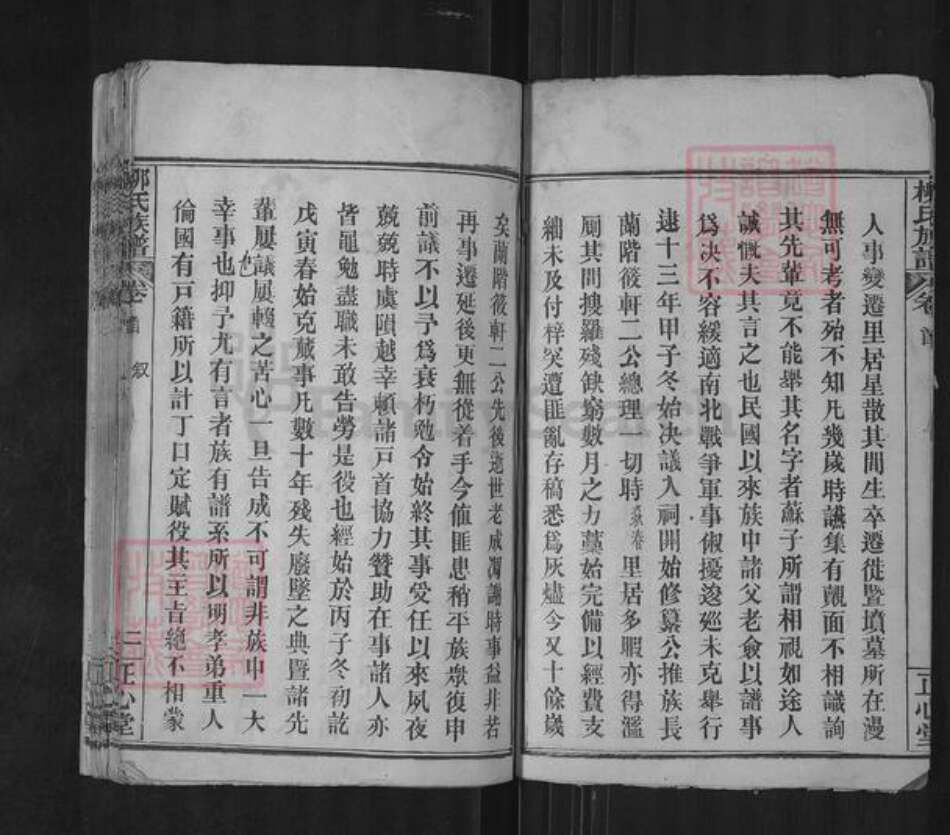 柳氏族譜
卷首
正心堂
人事變遷里居星散其間生卒遷徙暨墳墓所在漫
無可考者殆不知凡幾歲時讌集有覿面不相識詢
其先輩竟不能舉其名字者蘇子所謂相視如途人
誠慨夫其言之也民國以來族中諸父老僉以譜事
為決不容緩適南北戰爭軍事俶擾逡廵未克舉行
逮十三年甲子冬始決議入祠開始修纂公推族長
蘭階筱軒二公總理一切時 里居多暇亦得濫
厠其間搜羅殘缺窮數月之力藁始完備以經費支
絀未及付梓突遭匪亂存稿悉為灰燼今又十餘歲
矣蘭階筱軒二公先後逝世老成凋謝時事益非若
再事遷延後更無從着手今值匪患稍平族衆復申
前議不以予為衰朽勉令始終其事受任以來夙夜
兢兢時虞隕越幸賴諸戶首協力贊助在事諸人亦
皆黽勉盡職未敢告勞是役也經始於丙子冬初訖
戊寅春始克蕆事凡數十年殘失廢墜之典暨諸先
輩屢議屢輟之苦心一旦告成不可謂非族中一大
幸事也抑予尤有言者族有譜系所以明孝弟重人
倫國有戶籍所以計丁口定賦役其主旨絶不相蒙
柳氏族譜
卷首
叙
二
正心堂
FamilySearch